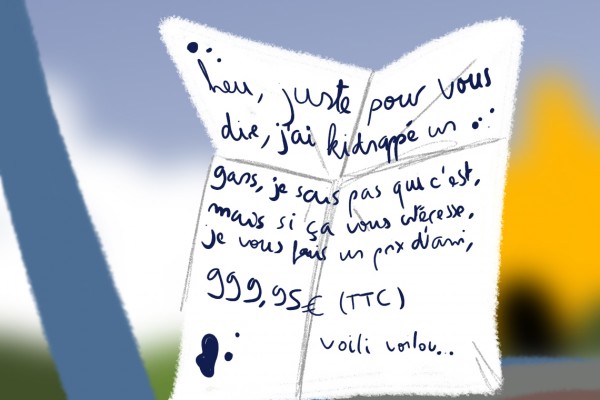 heu, juste pour vous
dire, j'ai kidnappé un
gars, je sais pas qui c'est,
mais si ça vous intéresse,
je vous fais un prix d'ami,
999,95€ (TTC)
voili voilou...